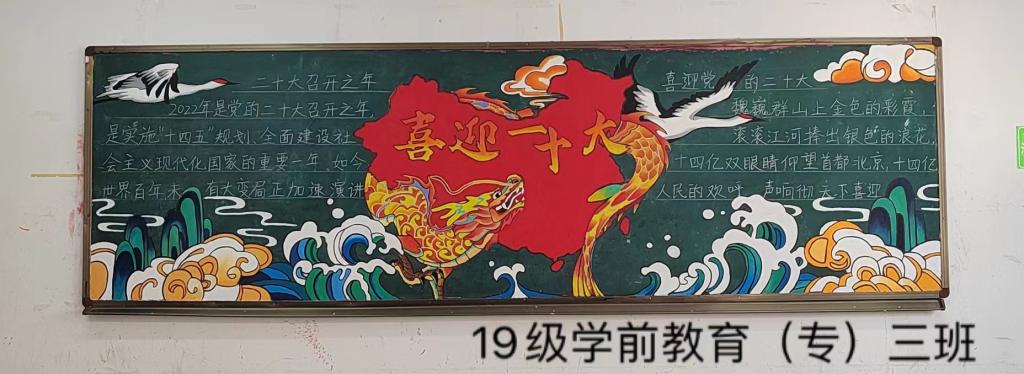 二十大召开之年
2022年是党的二十大召开之年
是实施"十四五"规划、全面建设社
会主义现代化国家的重要一年、如今
世界百年未 有大变局正加速演进
喜迎二十大
喜迎党 的二十大
巍巍群山上金色的彩霞,
滚滚江河捧出银色的浪花,
十四亿双眼睛仰望首都北京,十四亿
人民的欢呼 声响彻天下喜迎
19级学前教育（专）三班